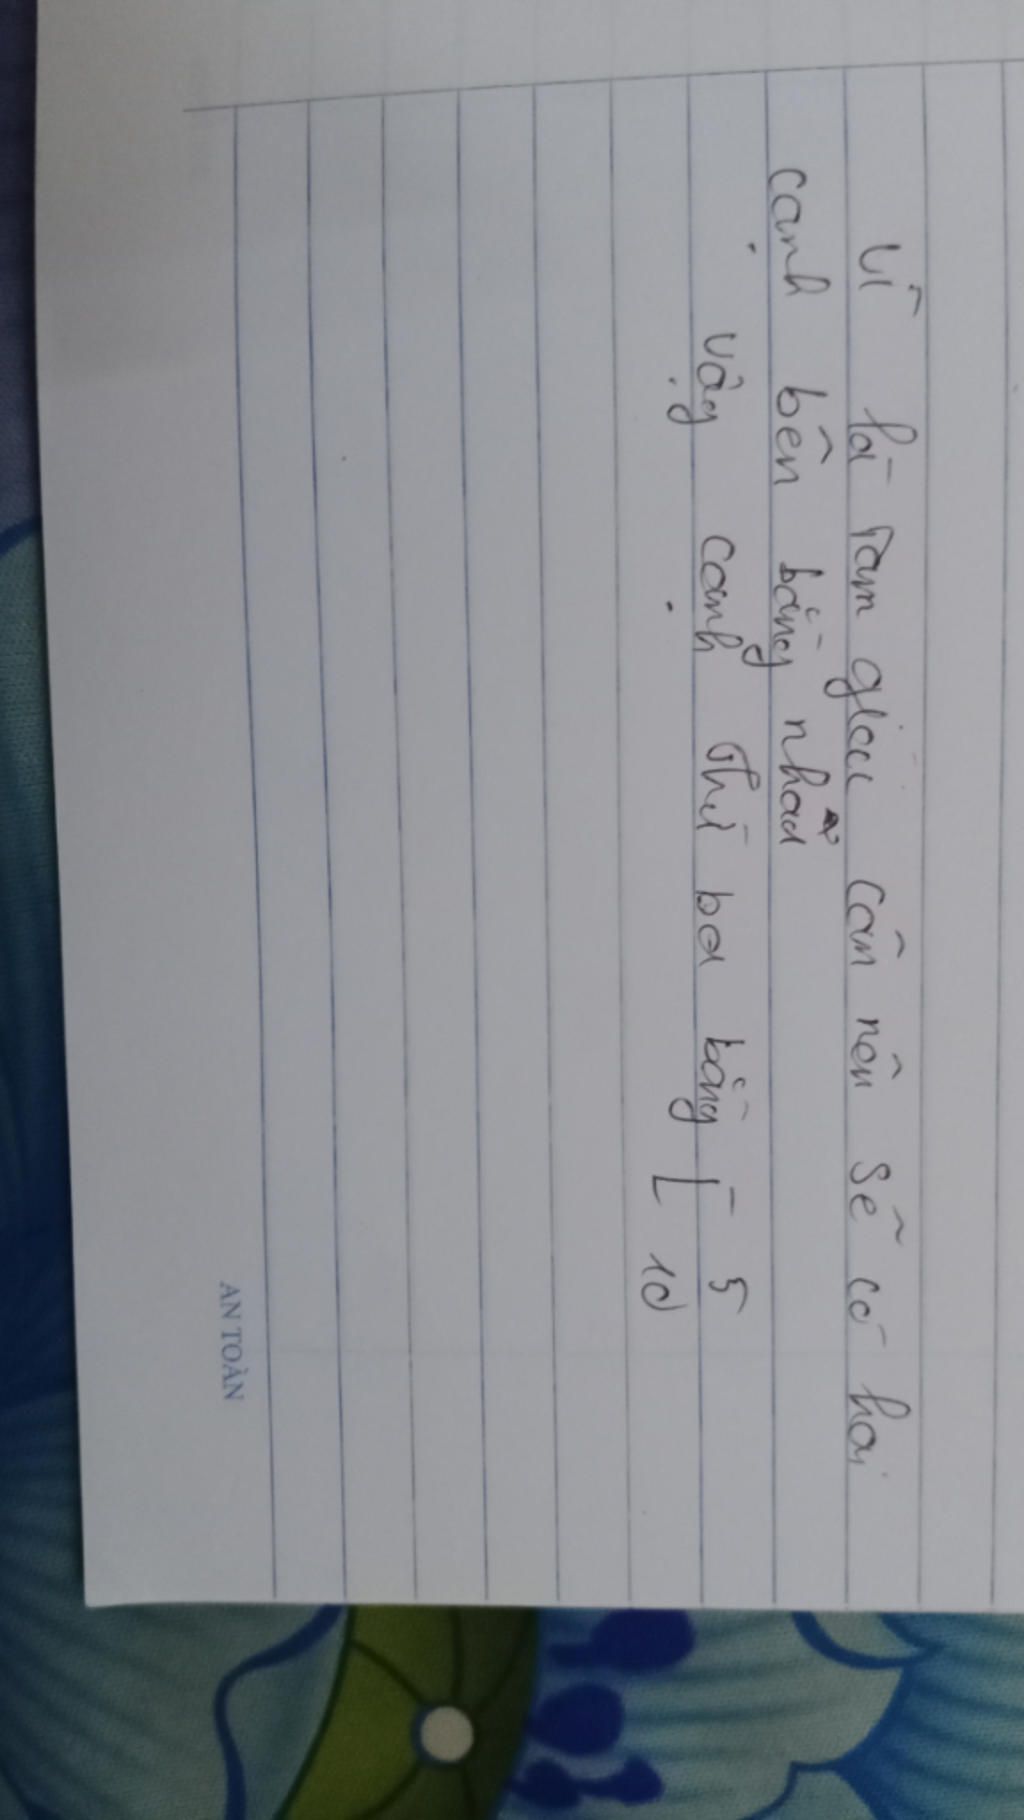 Vì là tam giác cân nên sẽ có hai
cạnh bên bằng nhau
Vậy cạnh thứ ba bằng [ 5
10
AN TOÀN